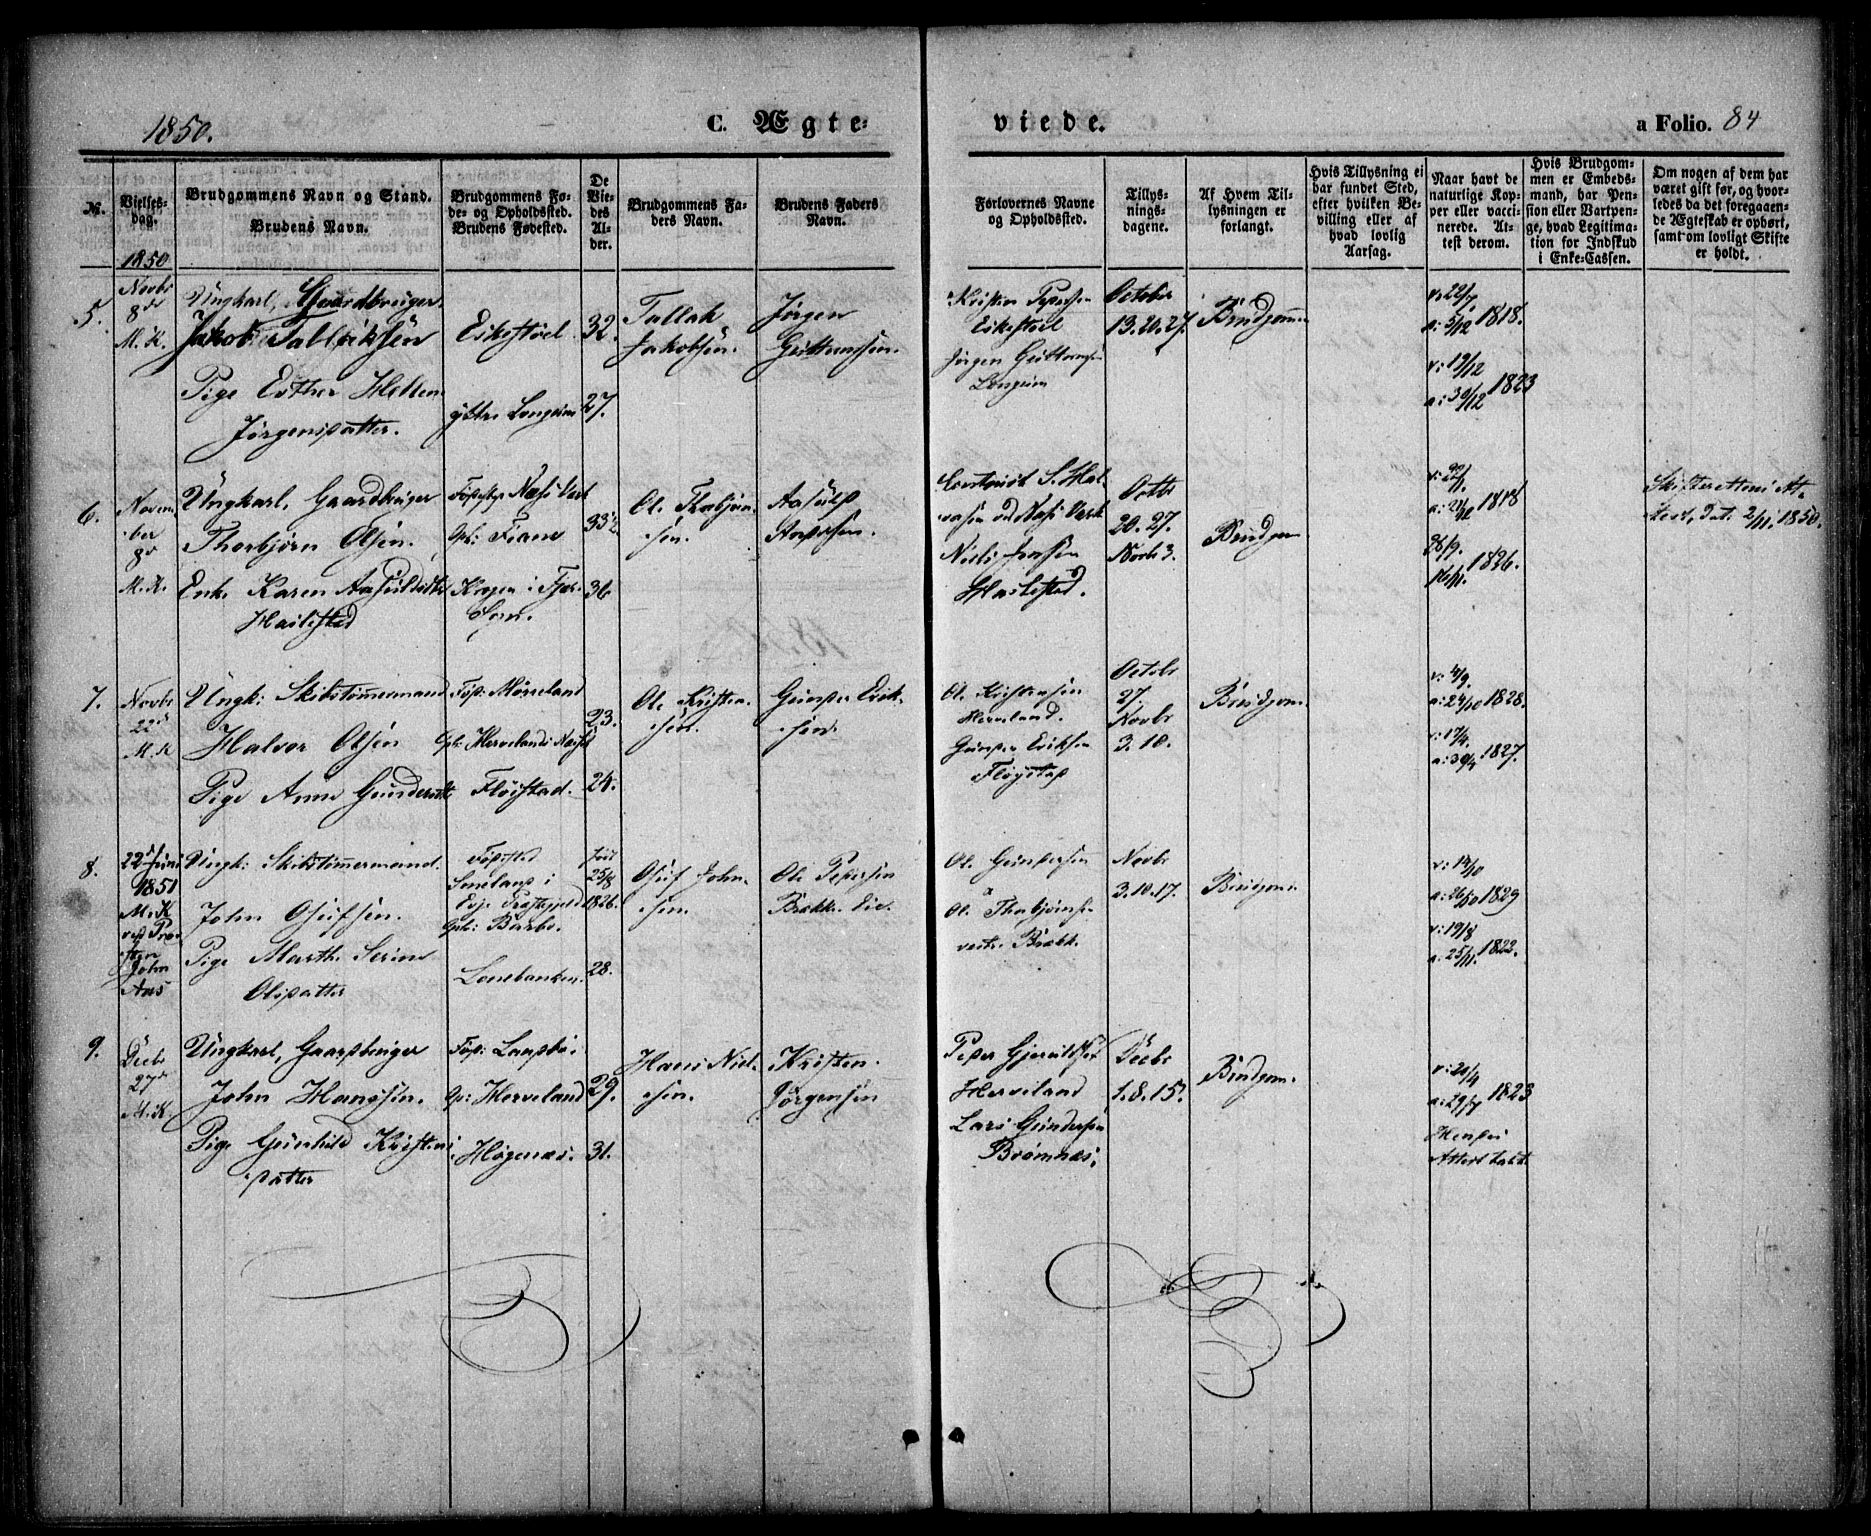 1850.
C. Ægte=
viede.
a Folio. 84
№.
Vielses-
dag.
1850
Brudgommens Navn og Stand.
Brudens Navn.
Brudgommens Fø-
de- og Opholdsted.
Brudens Fødested.
De
Vie-
des
Al-
der.
Brudgommens Fa-
ders Navn.
Brudens Faders
Navn.
Forlovernes Navne
og Opholdssted.
Tillys-
nings-
dagene.
Af Hvem Til-
lysningen er
forlangt.
Hvis Tillysning ei
har fundet Sted,
efter hvilken Be-
villing eller af
hvad lovlig
Aarsag.
Naar havt de
naturlige Kop-
per eller vacci-
nerede. At-
test derom.
Hvis Brudgom-
men er Embeds-
mand, har Pen-
sion eller Vartpen-
ge, hvad Legitima-
tion for Indskud
i Enke-Cassen.
Om nogen af dem har
været gift før, og hvor-
ledes da det foregaaen-
de Ægteskab er ophørt,
samt om lovligt Skifte
er holdt.
5.
Novbr
8de
M. K.
Ungkarl, Gaardbruger
Jakob Tallaksen
Pige Esther Hellen
Jørgensdatter.
Eikestøel
ytter Longum
32.
27.
Tallak
Jakobsen.
Jørgen
Guttormsen.
Kristen Pedersen
Eikestøel
Jørgen Guttormsen
Longum
October
13. 20. 27.
Brudgom
v: 22/7
a: 5/12 1818.
v: 19/12
a: 30/12 1823
6.
Novem-
ber
8de
M. K.
Ungkarl, Gaardbruger
Thorbjørn Olsen.
Enke Karen Aasulfsdtr
Hailestad
Fødested Næs Verk
Oph: Fiane
Krogen i Fjære
Sogn.
33½
36
Ole Thorbjørn-
sen.
Aasulf
Andersen.
S. Hal-
vorsen ved Næs Verk
Niels Jensen
Hailestad.
Octbr
20. 27.
Novbr 3.
Brudgom
1818
28/9.
16/11. 1826.
Skifterettens At-
test, dat. 2/11. 1850.
7.
Novbr
22de
M. K
Ungk: Skibstømmermand
Halvor Olsen
Pige Anne Gundersdtr
Fød: Mørveland
Oph: Merveland Næs
Fløistad.
23.
24.
Ole Kristen-
sen.
Gunder Erik-
sen.
Ole Kristensen
Merveland.
Gunder Eriksen
Fløystad
Octobr
27.
Novbr
3. 10.
Brudgom.
v: 4/9.
a: 24/10 1828.
v: 17/4.
a: 30/4 1827.
8.
22de Juni
1851
M. K
ved Præ-
sten
John
Aas
Ungk: Skibstømmermand.
John Olufsen.
Pige Marthe Serine
Olsdatter
Fødested
i
Evje Præstegjeld
Oph: Barbo.
Lonebanken.
født
25/8
1826.
28.
Oluf John-
sen.
Ole Pedersen
Brække Eie.
Ole Gundersen
Ole Thorbjørnsen
vestre Bræk.
Novbr
3. 10. 17.
Brudgom.
v: 14/10
a: 26/10 1829
v: 19/8
a. 25/11. 1822.
9.
Decbr
27de
M. K.
Ungkarl, Gaardbruger
John Hansen.
Pige Gunhild Kristens
datter
Fød: Landbø i
Op: Merveland
Høgenæs.
29.
31.
Hans Niel-
sen.
Kristen
Jørgensen
Peder
Merveland
Lars Gundersen
Brømnæs.
Decbr
1. 8. 15.
Brudgom.
v: 20/4
a: 29/4 1823
Hendes
Attest tabt